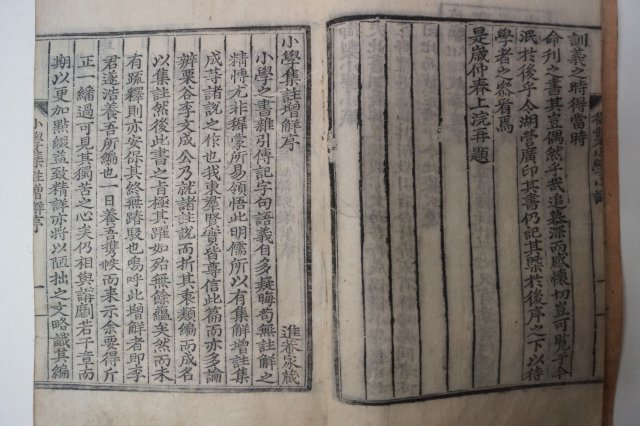 訓義之時得當時
命刊之書其豈偶然乎哉追慕深而感懷切豈可
泯於後乎令湖營廣印其書仍記其槩於後序之下以待
學者之
是歲仲春上浣再題
小學集註增解序
進菴家藏
小學之書雜引傳記字句語義自多疑晦苟無註解之
精博尤非穉蒙所易領悟此明儒所以有集解增註集
成等諸說之作也我東羣賢實皆尊信此篇而亦多論
辨栗谷李文成公乃就諸註說而折其衷類編而成名
以集註然後此書之旨極其躍如殆無餘蘊矣然而未
有疏釋則亦安保其終無踳駁也嗚呼此增解者即李
君遂浩養吾所編也一日養吾携帙而來示余要得斤
正一繙過可見其獨苦之心矣仍相與講劘若干章而
期以更加點綴益致精詳亦將以陋拙之文略識其編
小學集註增解序